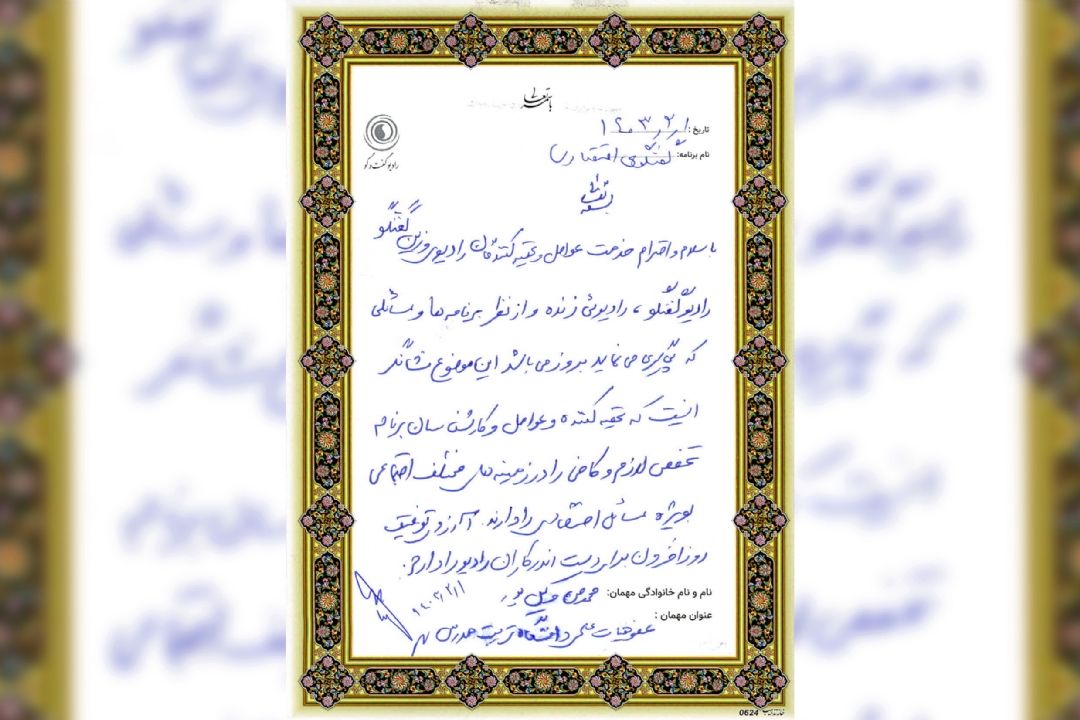 باسمه تعالی
رادیو گفت و گو
تاریخ: ۱۴۰۳/۲/۱
نام برنامه: گفتگوی اقتصادی
بسمه تعالی
با سلام و احترام خدمت عوامل و تهیه کنندگان رادیوی وزین گفتگو
رادیو گفتگو، رادیوئی زنده و از نظر برنامه ها و مسائلی
که پی گیری می نماید بروز می باشد این موضوع نشانگر
اینست که تهیه کننده و عوامل و کارشناسان برنامه
تخصص لازم و کافی را در زمینه های مختلف اجتماعی
بویژه مسائل اقتصادی را دارند. آرزوی توفیق
روز افزون برای دست اندرکاران رادیو را دارم.
نام و نام خانوادگی مهمان: محمدحسن
۱۴۰۳/۲/۱
عنوان مهمان: عضو هیات علمی دانشگاه تربیت مدرس
0624